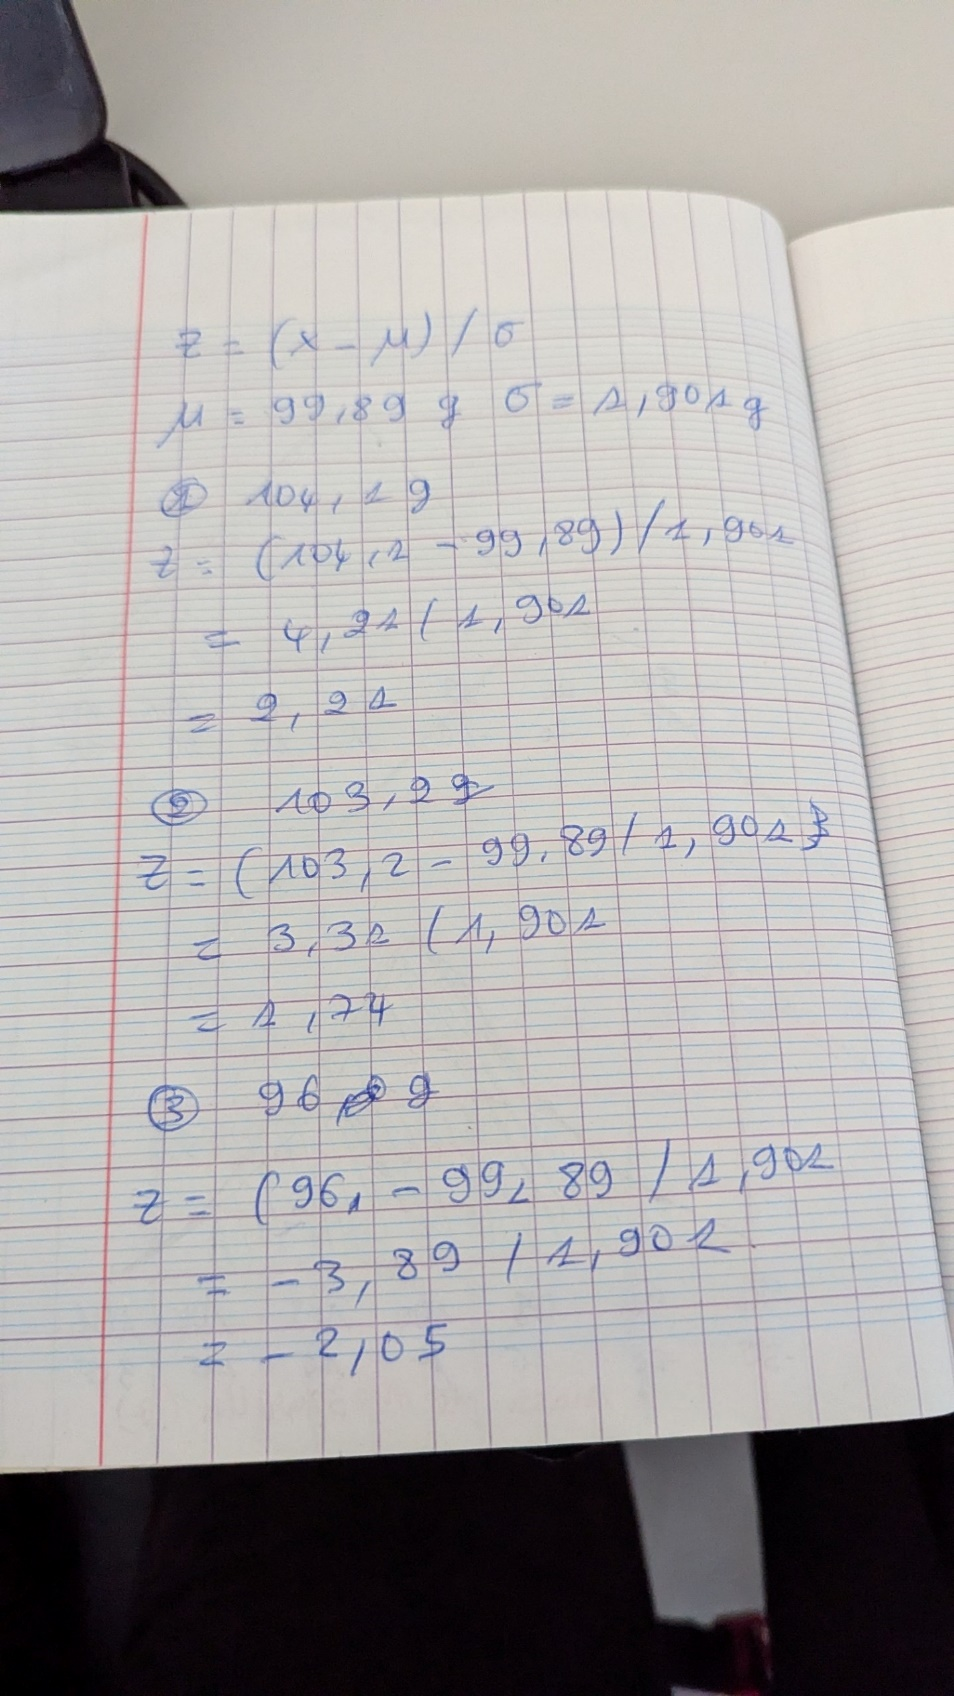 z = (x - μ) / σ
μ = 99,89 g σ = 1,901 g
① 104,1 g
z = (104,1 - 99,89) / 1,901
= 4,21 / 1,901
= 2,21
② 103,2 g
z = (103,2 - 99,89 / 1,901)
= 3,31 / 1,901
= 1,74
③ 96, g
z = (96, - 99, 89 / 1,901
= -3,89 / 1,901
= -2,05